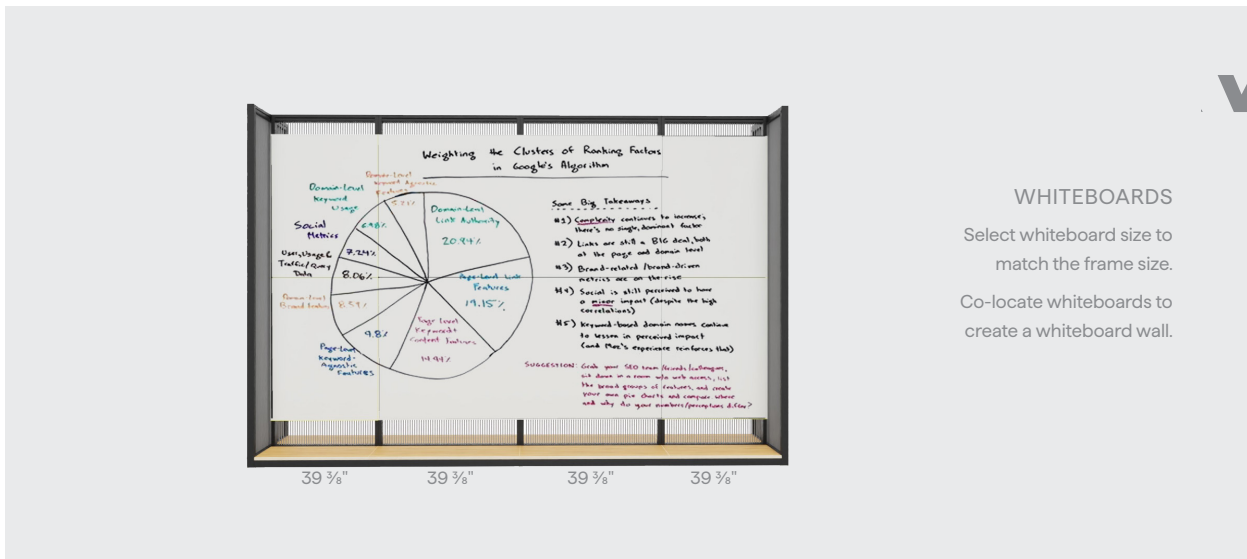 Weighting the Clusters of Ranking Factors
in Google's Algorithm
Domain-Level
Keyword Agnostic
Features
5.21%
Domain-Level
Keyword
Usage
6.98%
Social
Metrics
7.24%
User, Usage &
Traffic/Query
Data
8.06%
Domain-Level
Brand Features
8.59%
Page-Level
Keyword-
Agnostic
Features
9.8%
Page Level
Keyword +
Content Features
14.94%
Page-Level Link
Features
19.15%
Domain-Level
Link Authority
20.94%
Some Big Takeaways
#1) Complexity continues to increase,
there's no single, dominant factor
#2) Links are still a BIG deal, both
at the page and domain level
#3) Brand-related/brand-driven
metrics are on-the-rise
#4) Social is still perceived to have
a minor impact (despite the high
correlations)
#5) Keyword-based domain names continue
to lessen in perceived impact
(and Moz's experience reinforces that)
SUGGESTION: Grab your SEO team/friends/colleagues,
sit down in a room w/o web access, list
the broad groups of features, and create
your own pie charts and compare where
and why do your numbers/perceptions differ?
39 3/8" 39 3/8" 39 3/8" 39 3/8"
WHITEBOARDS
Select whiteboard size to
match the frame size.
Co-locate whiteboards to
create a whiteboard wall.